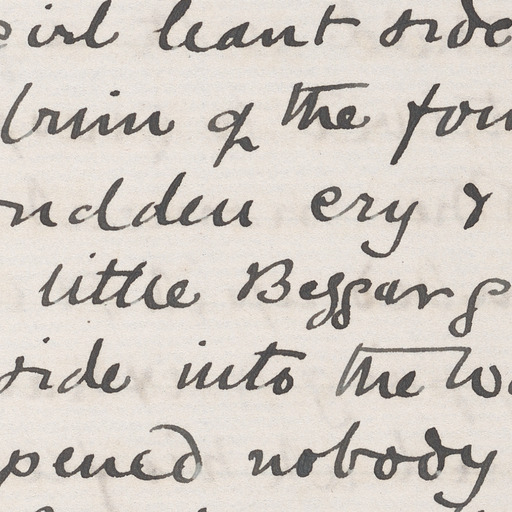 girl leant side
brim of the fou
udden cry &
little Beggar g
side into the Wa
pened nobody